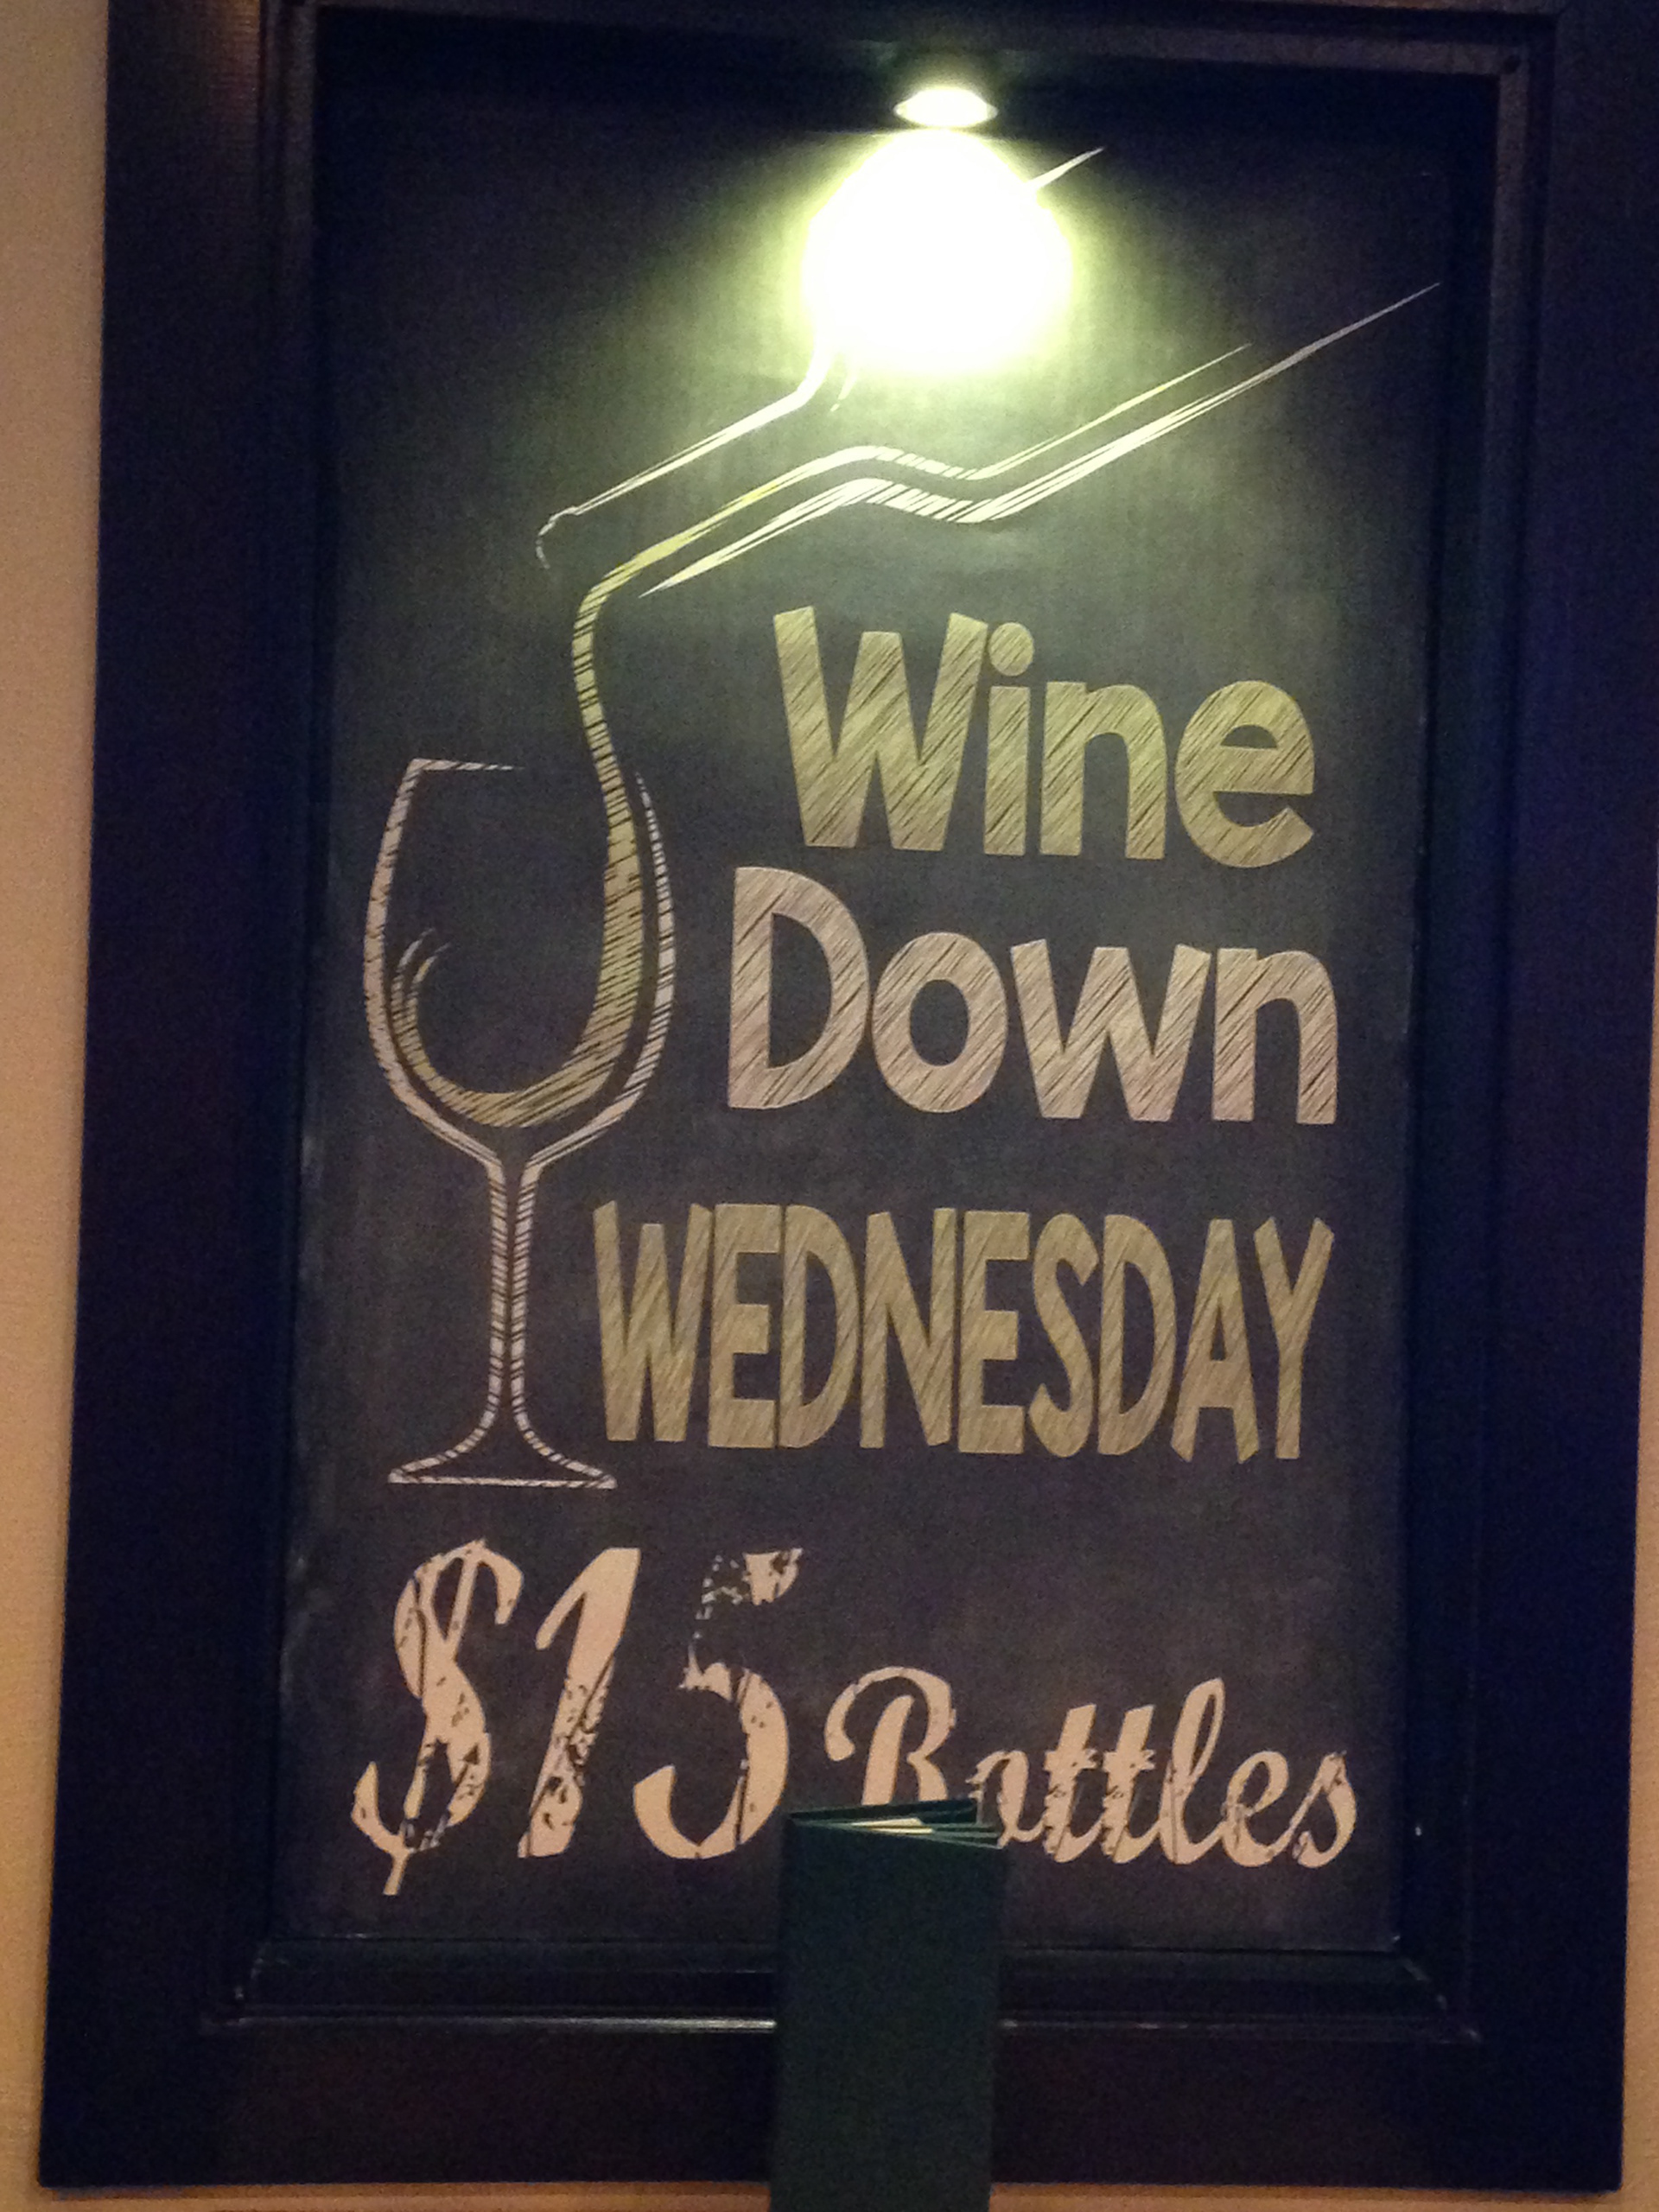 Wine
Down
WEDNESDAY
$15 Bottles